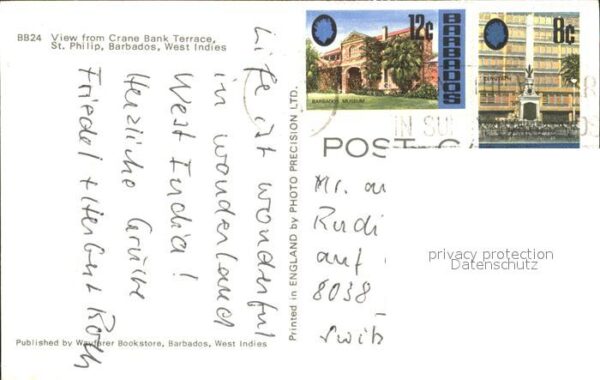 BB24 View from Crane Bank Terrace,
St. Philip, Barbados, West Indies
Life ist wonderful
in wonderland
West India!
Herzliche Grüsse
Friedel + Herbert Roth
Published by Wayfarer Bookstore, Barbados, West Indies
Printed in ENGLAND by PHOTO PRECISION LTD.
12c
BARBADOS
BARBADOS MUSEUM
8c
IN SU
POST CA
Mr. 
Rudi
auf
8038
privacy protection
Datenschutz